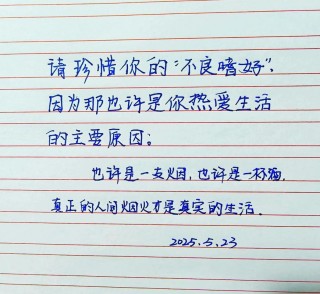 请珍惜你的“不良嗜好”，
因为那也许是你热爱生活
的主要原因。
也许是一支烟，也许是一杯酒，
真正的人间烟火才是真实的生活．
2025.5.23